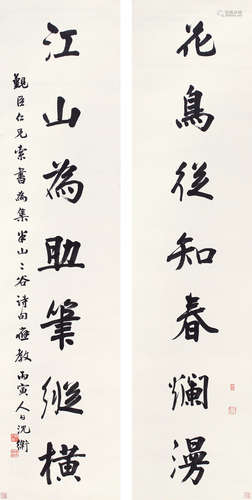 花鳥從知春爛漫
江山為助筆縱橫
觀臣仁兄索書為集半山山谷詩句應教丙寅人日沈衛